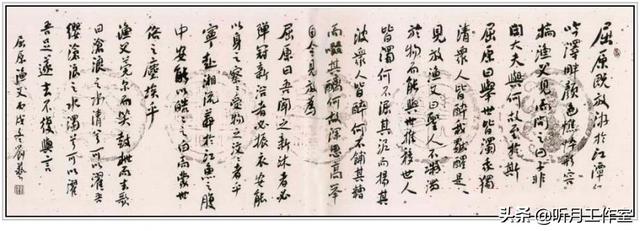 屈原既放游於江潭行
吟澤畔顏色憔悴形容
槁漁父見而問之曰子非
閭大夫與何故至於斯
屈原曰舉世皆濁我獨
清眾人皆醉我獨醒是以
見放漁父曰聖人不凝滯
於物而能與世推移世人
皆濁何不淈其泥而揚其
波眾人皆醉何不餔其糟
而歠其醨何故深思高舉
自令見放為
屈原曰吾聞之新沐者必
彈冠新浴者必振衣安能
以身之察察受物之汶汶者乎
寧赴湘流葬於江魚之腹
中安能以皓皓之白而蒙世
俗之塵埃乎
漁父莞爾而笑鼓枻而去歌
曰滄浪之水清兮可以濯吾
纓滄浪之水濁兮可以濯
吾足遂去不復與言
屈原漁父丙戌冬劉藝
头条 @听月工作室